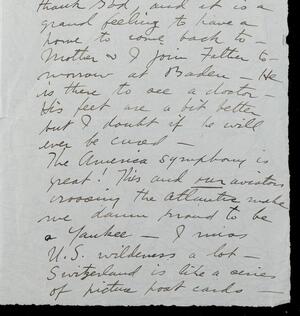 thank God, and it is a
grand feeling to have a
home to come back to —
Mother & I join Father to-
morrow at Baden — He
is there to see a doctor —
His feet are a bit better
but I doubt if he will
ever be cured —
The America symphony is
great! This and our aviators
crossing the Atlantic make
me damn proud to be
a Yankee — I miss
U.S. wilderness a lot —
Switzerland is like a series
of picture post cards —